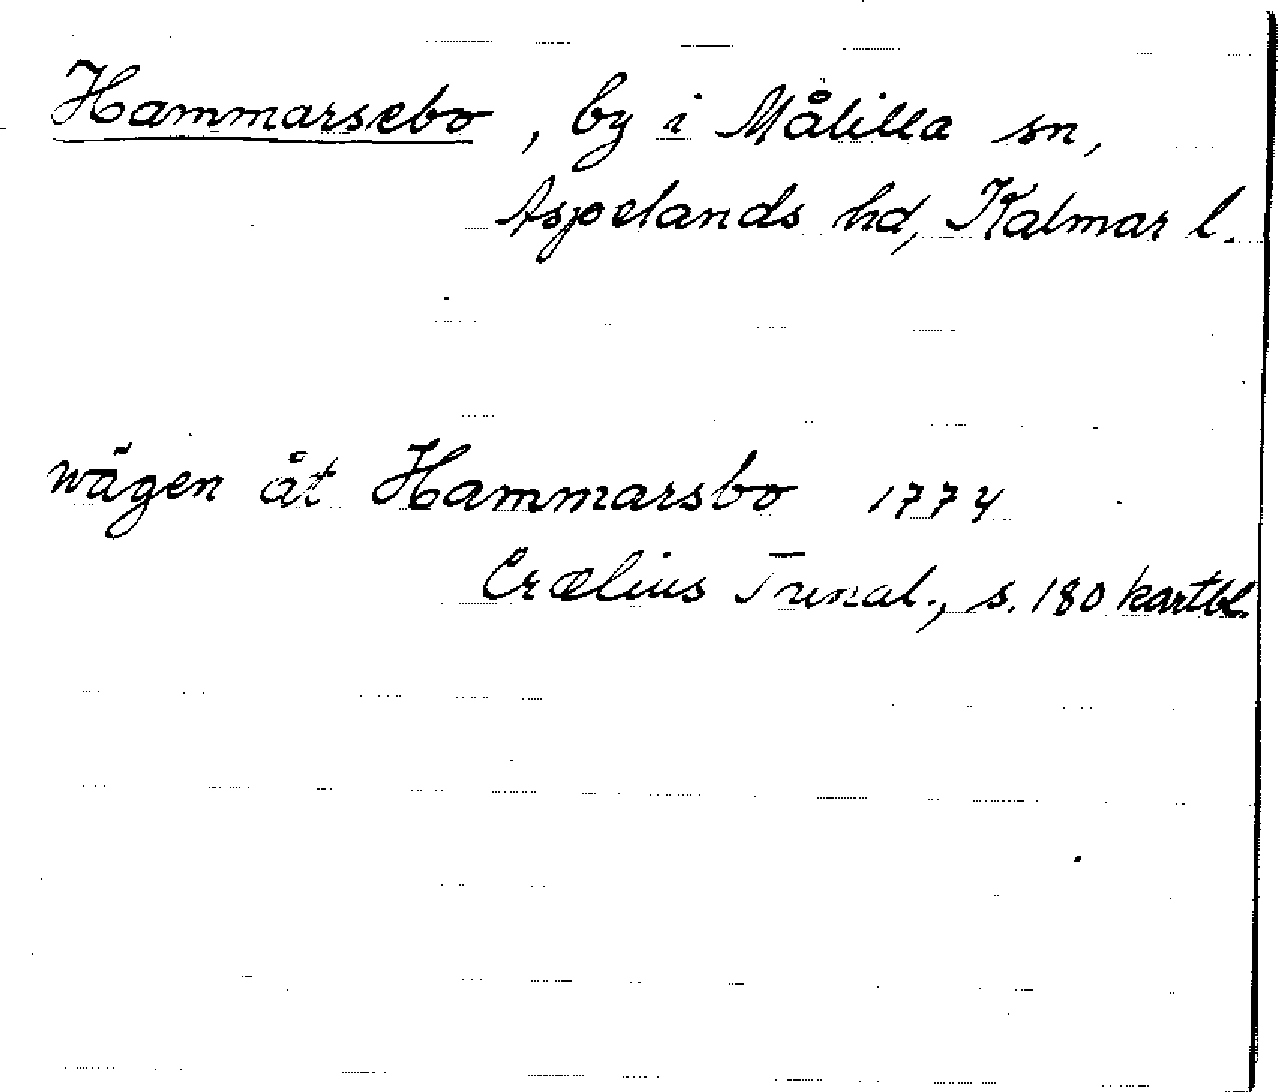 Hammarsebo, by i Målilla sn,
Aspelands hd, Kalmar l.
wägen åt Hammarsbo 1774
Crælius Tunal., s. 180 kartbl.